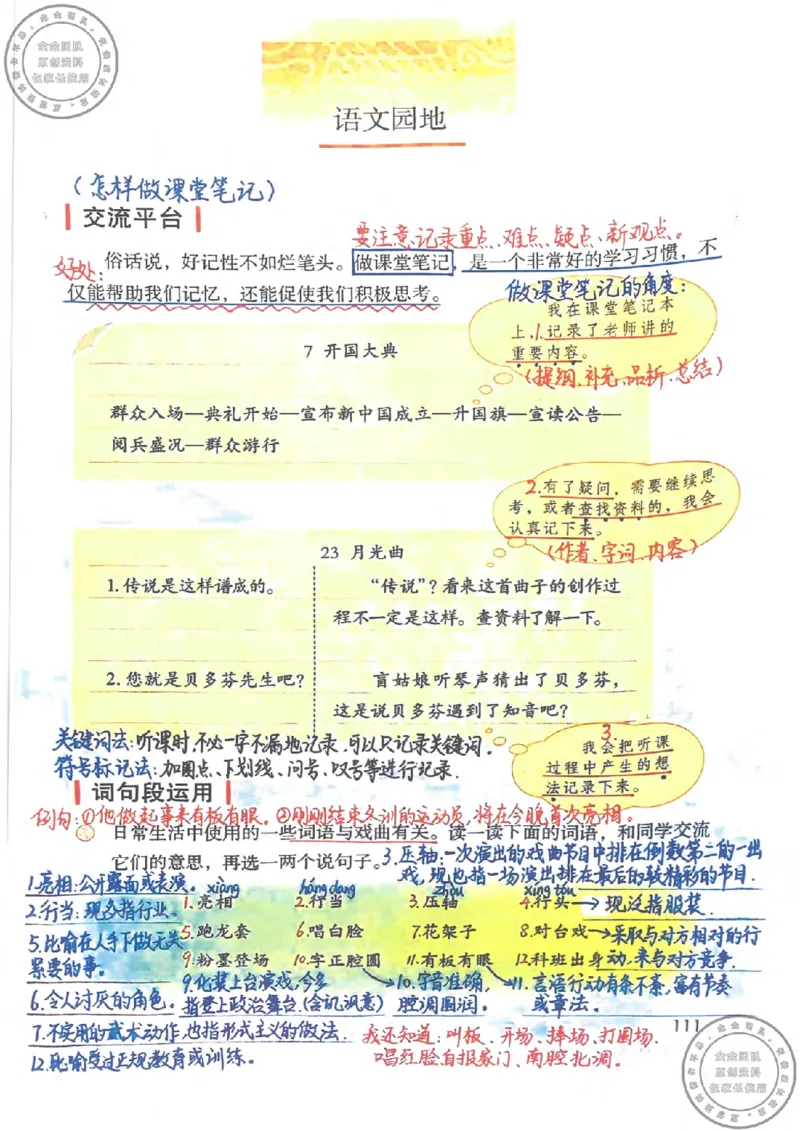 语文园地
(怎样做课堂笔记)
交流平台
要注意记录重点、难点、疑点、新观点。
好处:
俗话说，好记性不如烂笔头。做课堂笔记，是一个非常好的学习习惯，不
仅能帮助我们记忆，还能促使我们积极思考。
做课堂笔记的角度:
我在课堂笔记本
上，1.记录了老师讲的
重要内容。
(提纲、补充、品析、总结)
7 开国大典
群众入场—典礼开始—宣布新中国成立—升国旗—宣读公告—
阅兵盛况—群众游行
2.有了疑问，需要继续思
考，或者查找资料的，我会
认真记下来。
(作者、字词、内容)
23 月光曲
1.传说是这样谱成的。
“传说”？看来这首曲子的创作过
程不一定是这样。查资料了解一下。
2.您就是贝多芬先生吧?
盲姑娘听琴声猜出了贝多芬，
这是说贝多芬遇到了知音吧?
关键词法:听课时,不必一字不漏地记录,可以只记录关键词。
符号标记法:加圆点、下划线、问号、叹号等进行记录.
3.
我会把听课
过程中产生的想
法记录下来。
词句段运用
例句:①他做起事来有板有眼。②刚刚结束冬训的运动员,将在今晚首次亮相。
日常生活中使用的一些词语与戏曲有关。读一读下面的词语，和同学交流
它们的意思，再选一两个说句子。
3.压轴:一次演出的戏曲节目中排在倒数第二的一出
戏,现也指一场演出排在最后的较精彩的节目.
1.亮相:公开露面或表演。
xiàng háng dang zhòu xíng tou
1.亮相 2.行当 3.压轴 4.行头→现泛指服装.
2.行当:现多指行业。
5.跑龙套 6.唱白脸 7.花架子 8.对台戏→采取与对方相对的行
动,来与对方竞争.
5.比喻在人手下做无关
紧要的事。
9.粉墨登场 10.字正腔圆 11.有板有眼 12.科班出身
9.化装上台演戏,今多
指登上政治舞台.(含讥讽意)
10.字音准确,
腔调圆润。
11.言语行动有条不紊,富有节奏
或章法。
6.令人讨厌的角色。
7.不实用的武术动作,也指形式主义的做法.
12.比喻受过正规教育或训练。
我还知道:叫板、开场、捧场、打圆场、
唱红脸、自报家门、南腔北调。
111